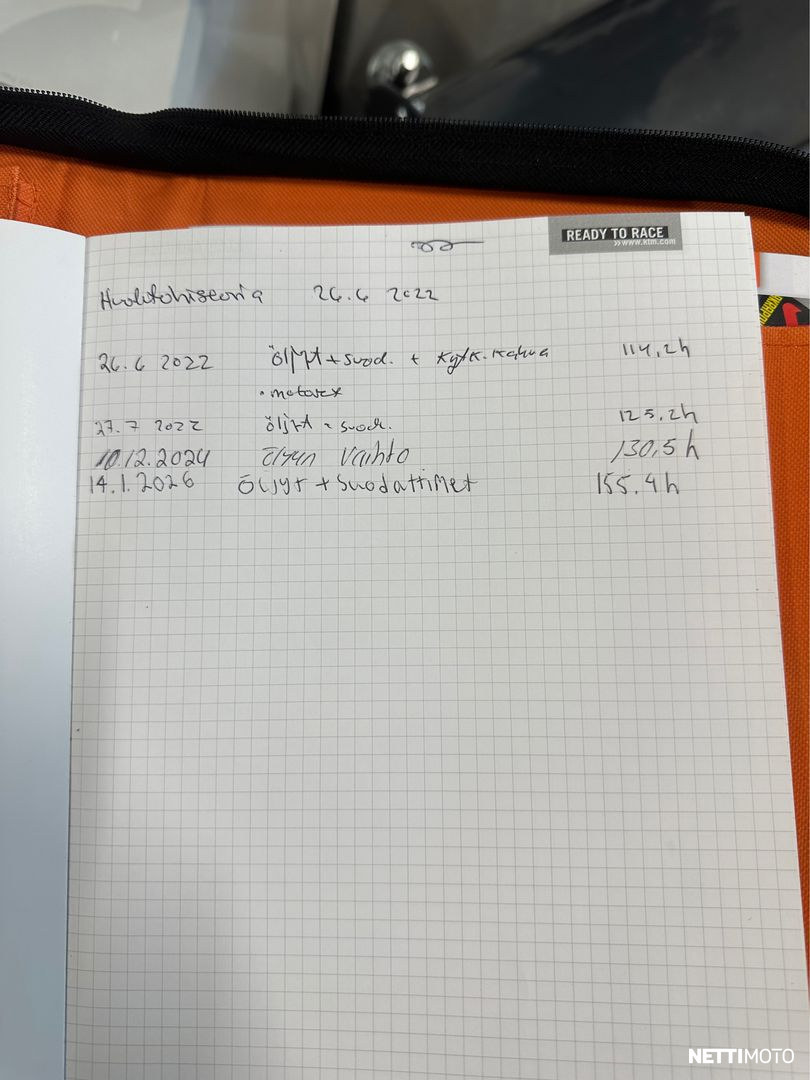 READY TO RACE
»www.ktm.com
Huoltohistoria 26.6 2022
26.6 2022 öljyt + suod. + kytk. kahva 114,2h
• motorex
27.7 2022 öljyt + suod. 125.2h
10.12.2024 öljyn vaihto 130,5h
14.1.2026 öljyt + suodattimet 155.4h
NETTIMOTO